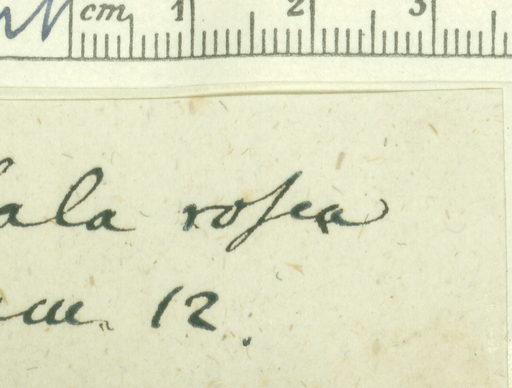 cm 1 2 3
ala rosea
12.